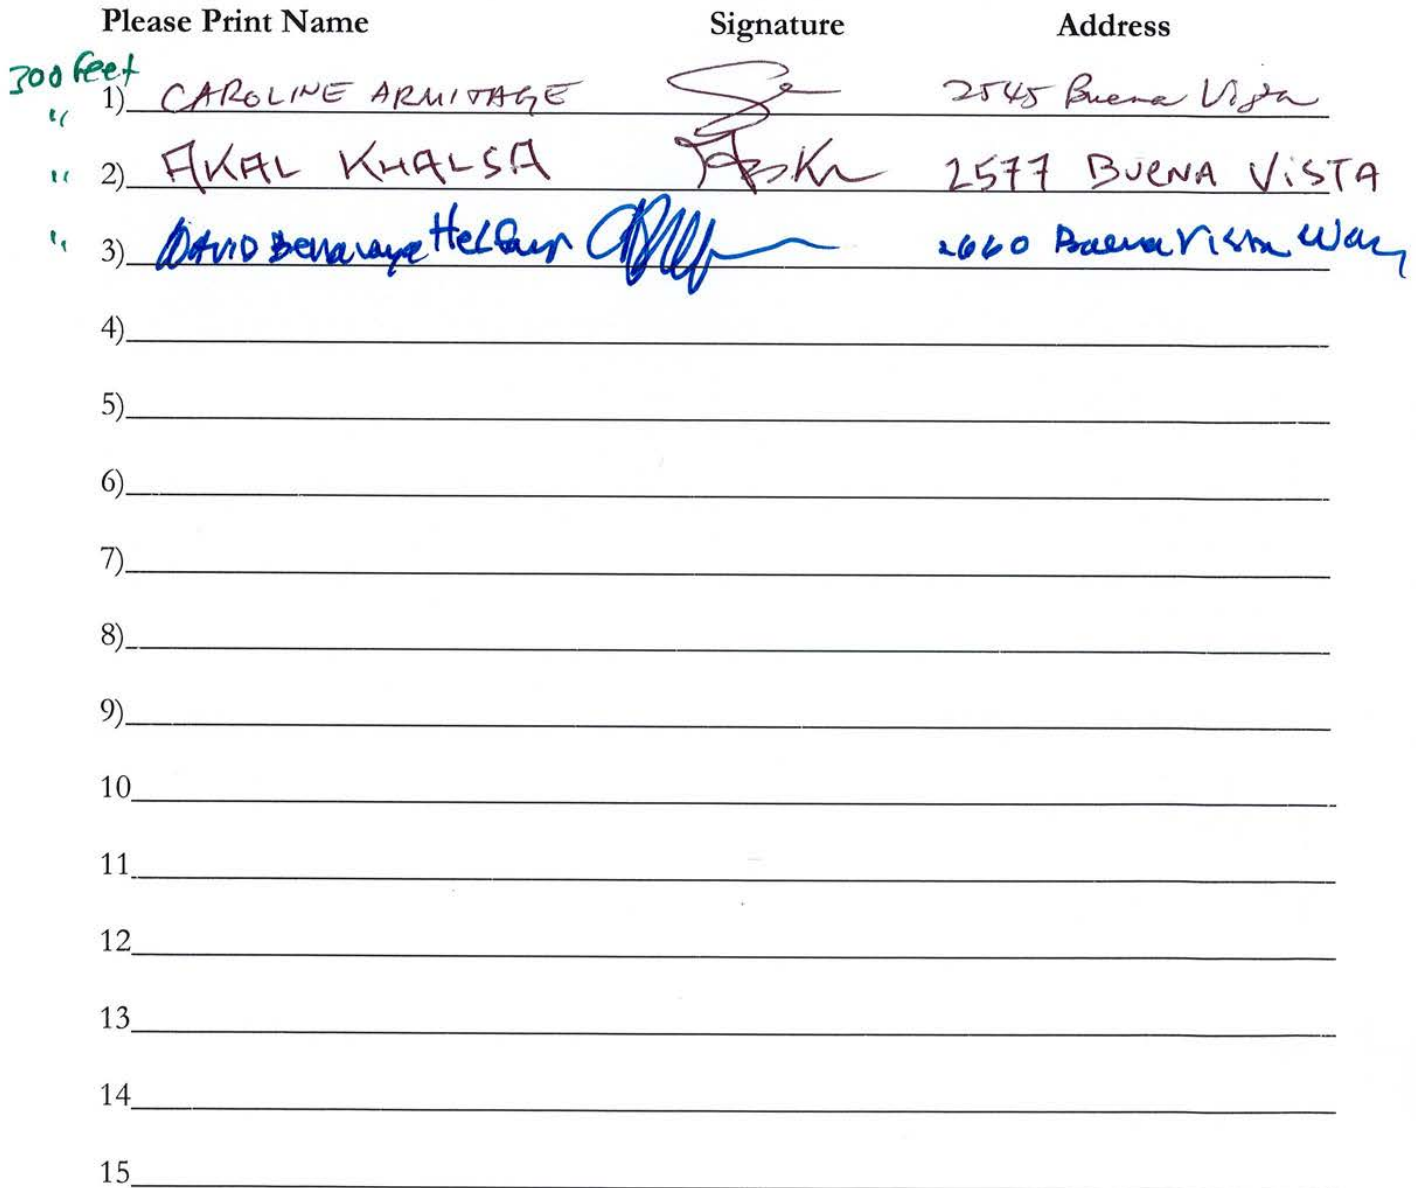 Please Print Name Signature Address
300 feet
1) CAROLINE ARMITAGE 2545 Buena Vista
"
" 2) AKAL KHALSA 2577 BUENA VISTA
" 3) DAVID 2660 Buena Vista Way
4)
5)
6)
7)
8)
9)
10
11
12
13
14
15